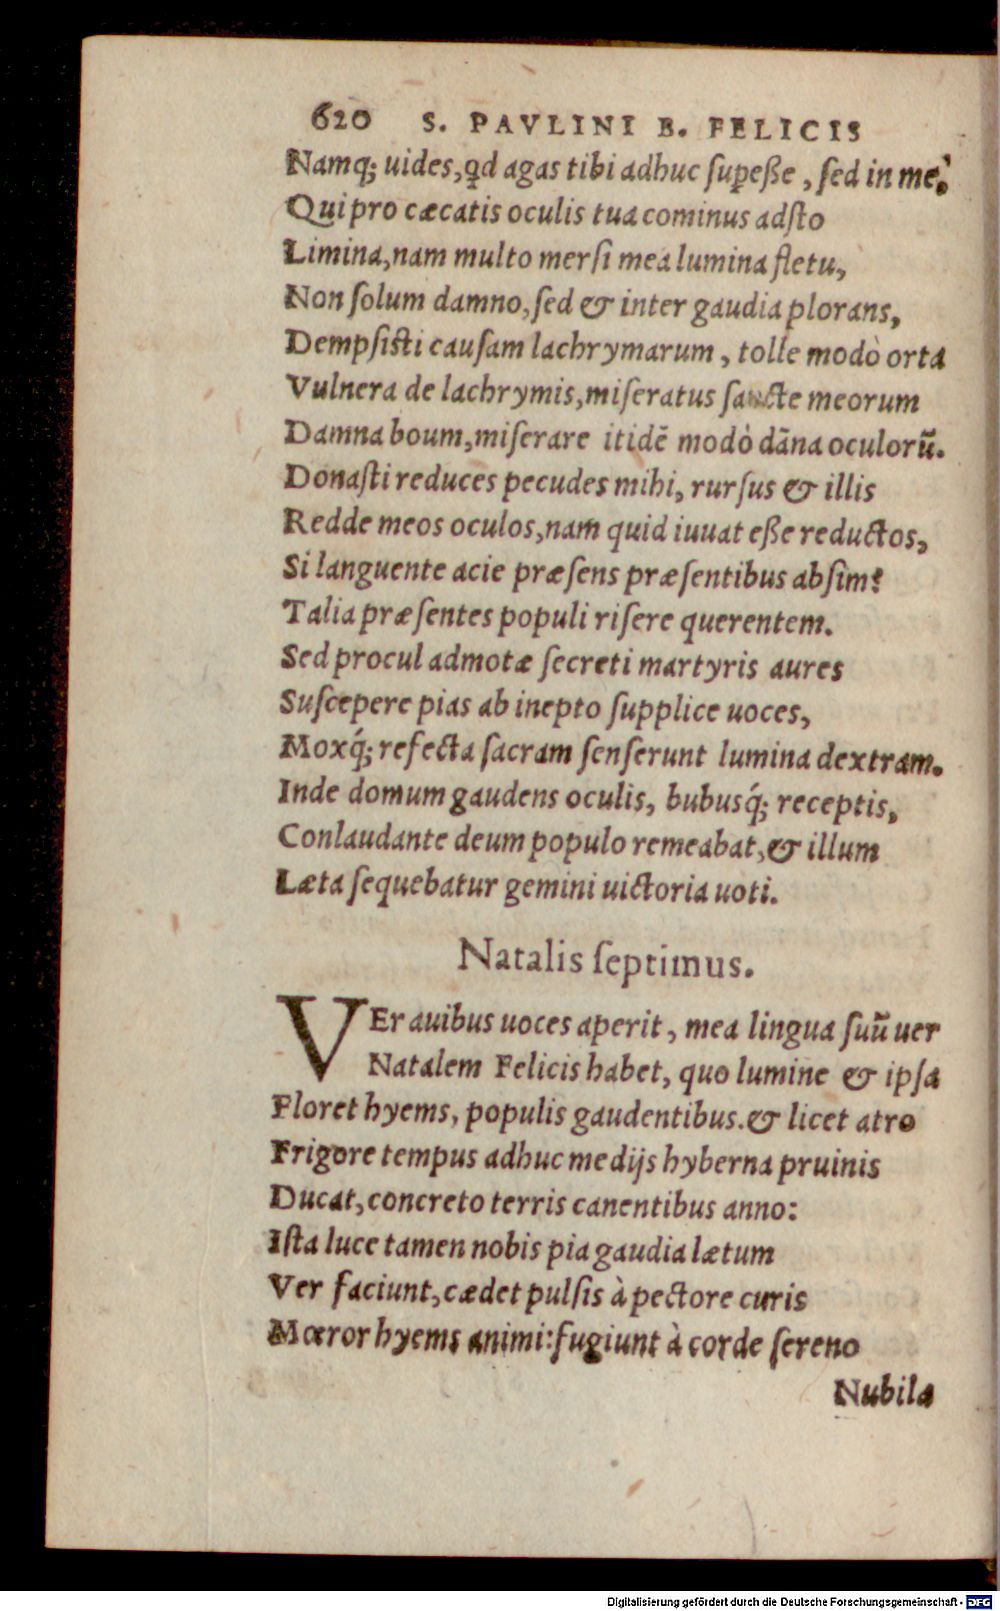 620 S. PAVLINI B. FELICIS
Namq; uides, qd agas tibi adhuc suꝑeße, sed in me.
Qui pro cæcatis oculis tua cominus adſto
Limina, nam multo merſi mea lumina fletu,
Non ſolum damno, ſed & inter gaudia plorans,
Dempſiſti cauſam lachrymarum, tolle modò orta
Vulnera de lachrymis, miſeratus ſancte meorum
Damna boum, miſerare itidē modò dāna oculorū.
Donaſti reduces pecudes mihi, rurſus & illis
Redde meos oculos, nam quid iuuat eße reductos,
Si languente acie præſens præſentibus abſim?
Talia præſentes populi riſere querentem.
Sed procul admotæ ſecreti martyris aures
Suſcepere pias ab inepto ſupplice uoces,
Moxq́; refecta ſacram ſenſerunt lumina dextram.
Inde domum gaudens oculis, bubusq́; receptis,
Conlaudante deum populo remeabat, & illum
Læta ſequebatur gemini uictoria uoti.
Natalis ſeptimus.
VEr auibus uoces aperit, mea lingua ſuū uer
Natalem Felicis habet, quo lumine & ipſa
Floret hyems, populis gaudentibus. & licet atro
Frigore tempus adhuc medijs hyberna pruinis
Ducat, concreto terris canentibus anno:
Iſta luce tamen nobis pia gaudia lætum
Ver faciunt, cædet pulſis à pectore curis
Mœror hyems animi: fugiunt à corde ſereno
Nubila
Digitalisierung gefördert durch die Deutsche Forschungsgemeinschaft - DFG